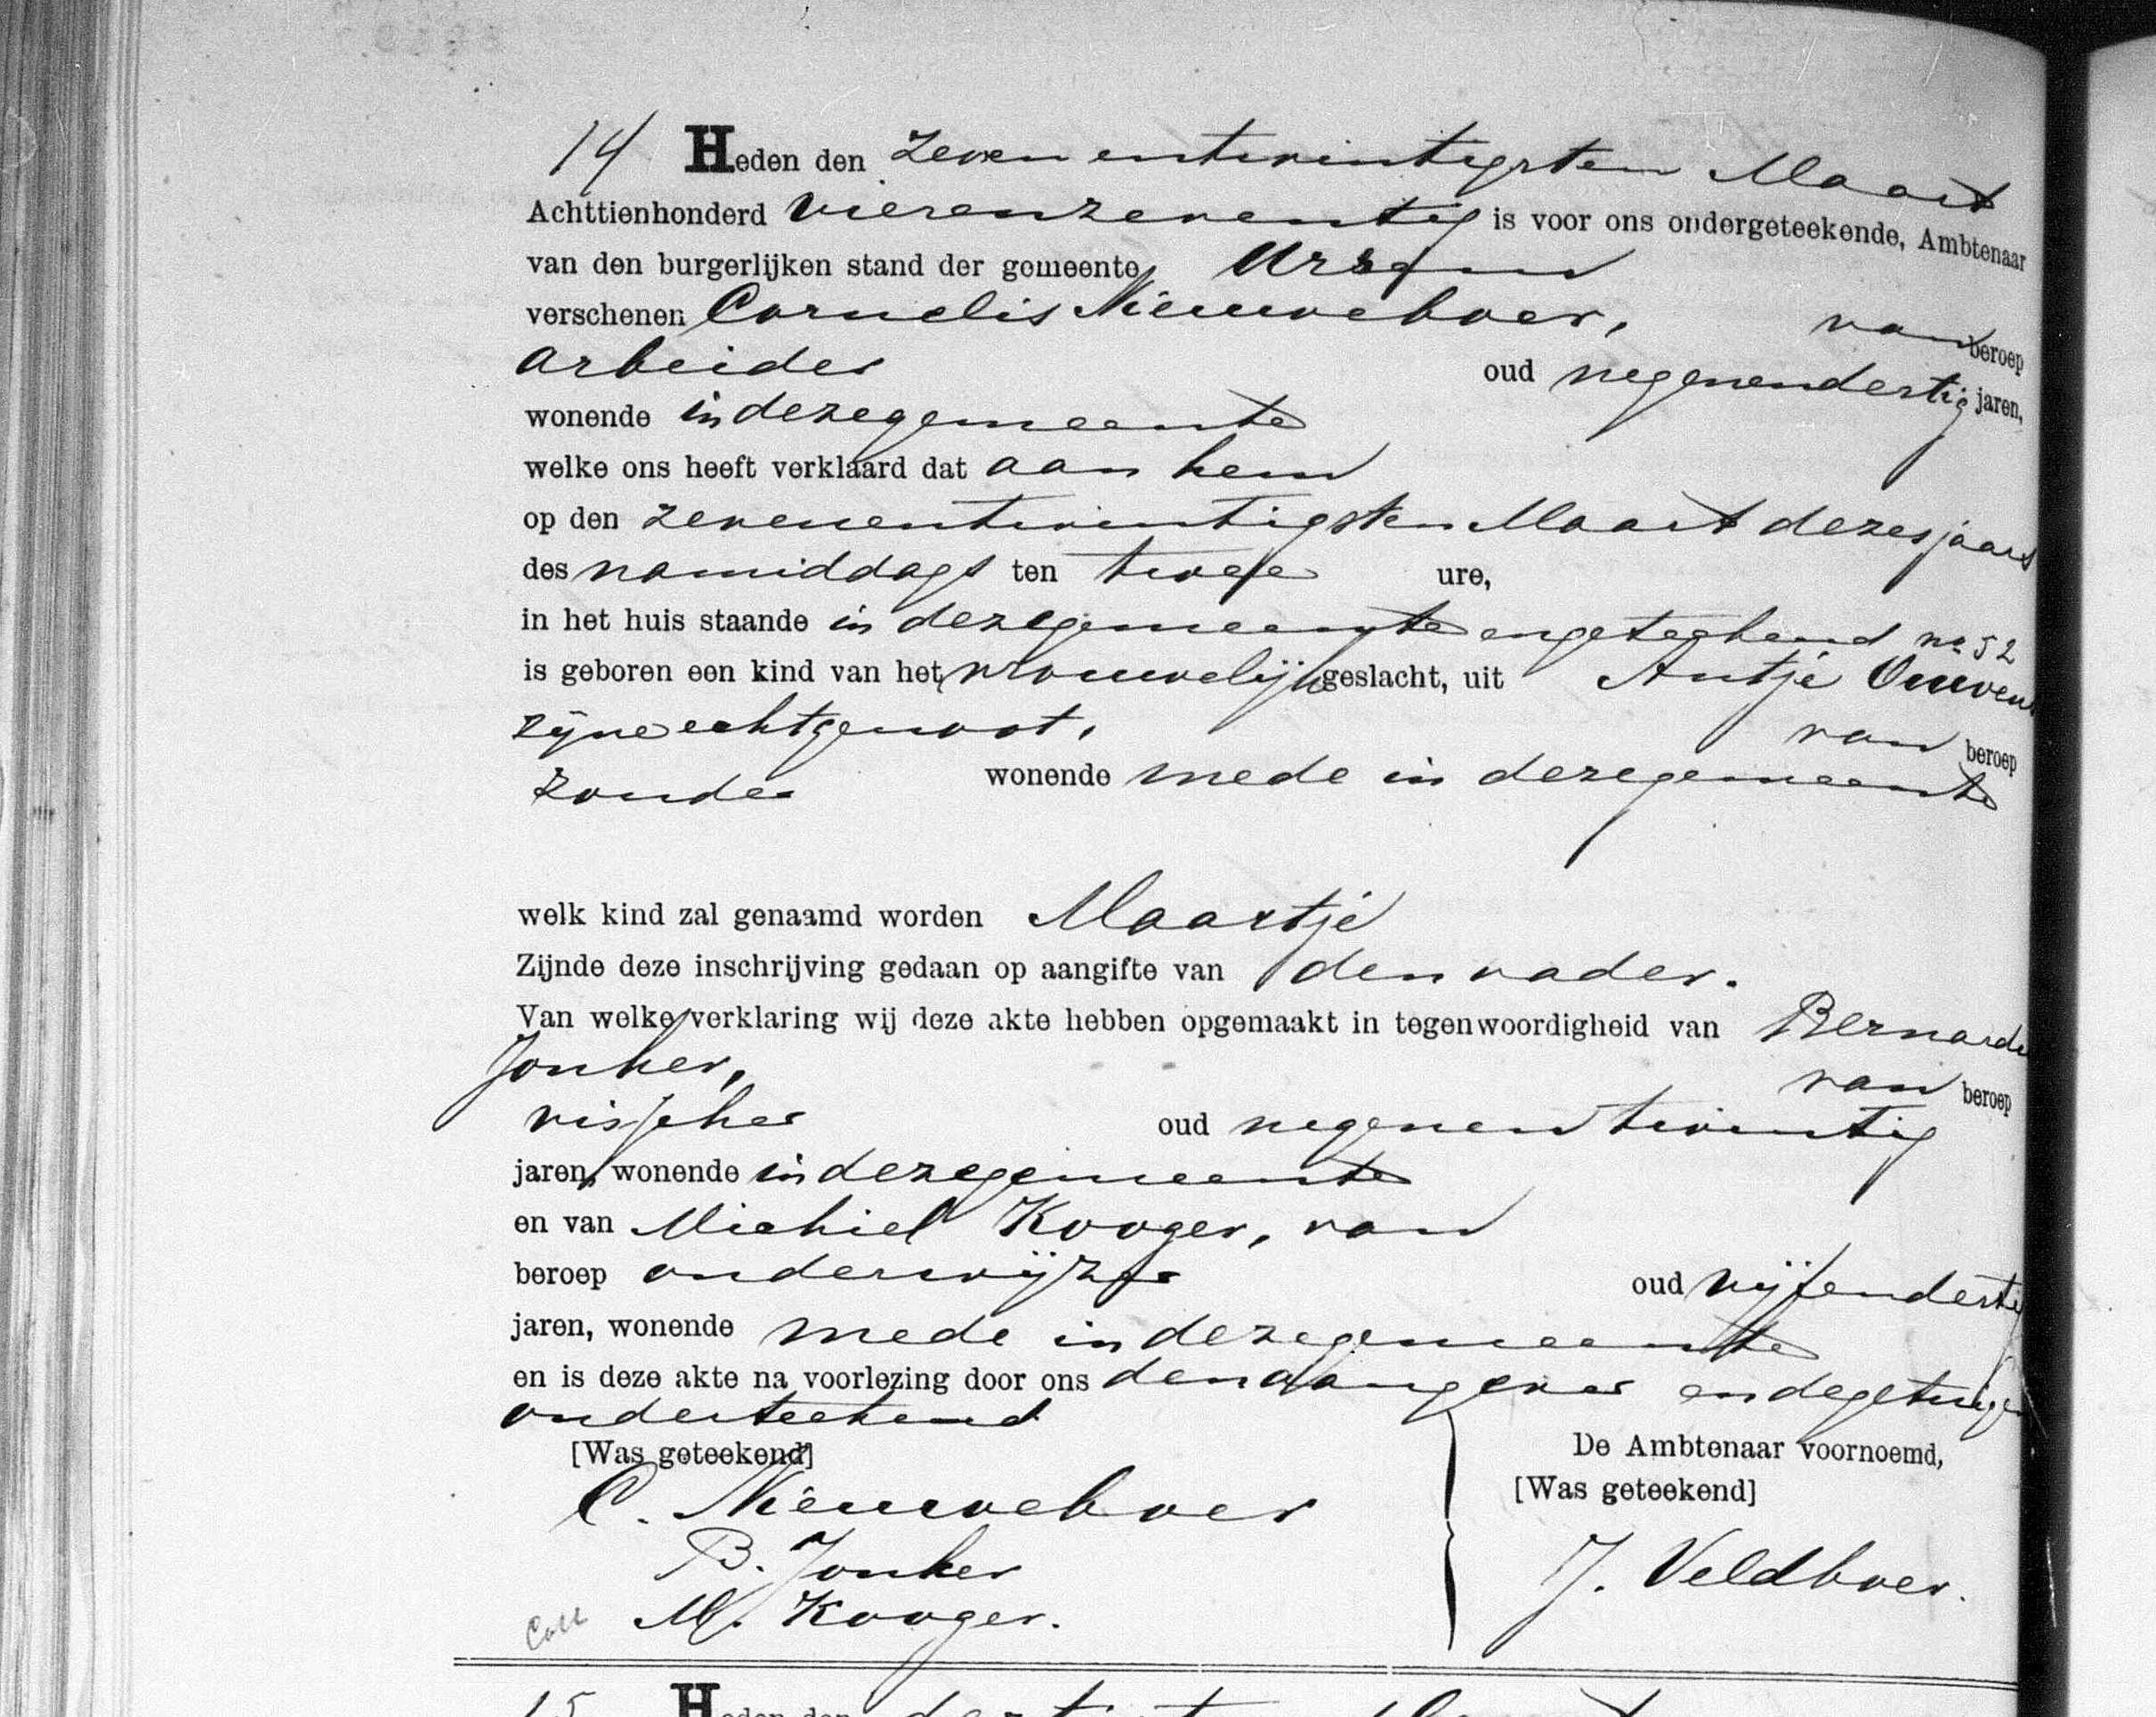 14 Heden den zevenentwintigsten Maart
Achttienhonderd vierenzeventig is voor ons ondergeteekende, Ambtenaar
van den burgerlijken stand der gemeente Ursem
verschenen Cornelis Nieuweboer, van beroep
arbeider oud negenendertig jaren,
wonende in deze gemeente
welke ons heeft verklaard dat aan hem
op den zevenentwintigsten Maart dezes jaars
des namiddags ten twee ure,
in het huis staande in deze gemeente en geteekend no 52
is geboren een kind van het vrouwelijk geslacht, uit Antje
zijne echtgenoot, van beroep
zonder wonende mede in deze gemeente
welk kind zal genaamd worden Maartje
Zijnde deze inschrijving gedaan op aangifte van den vader.
Van welke verklaring wij deze akte hebben opgemaakt in tegenwoordigheid van
Jonker, van beroep
visscher oud negenentwintig
jaren, wonende in deze gemeente
en van Michiel Kooger, van
beroep onderwijzer oud vijfendertig
jaren, wonende mede in deze gemeente
en is deze akte na voorlezing door ons den aangever en de getuigen
onderteekend
[Was geteekend] De Ambtenaar voornoemd,
[Was geteekend]
C. Nieuweboer
B. Jonker J. Veldboer.
Coll M. Kooger.
15 Heden den